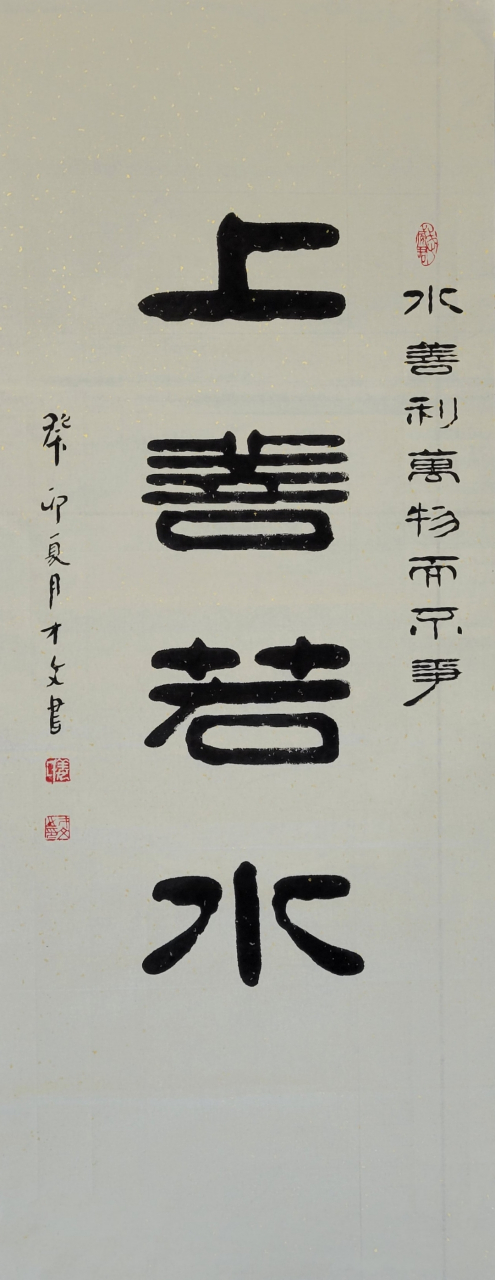 水善利萬物而不爭
上善若水
癸卯夏月才文書